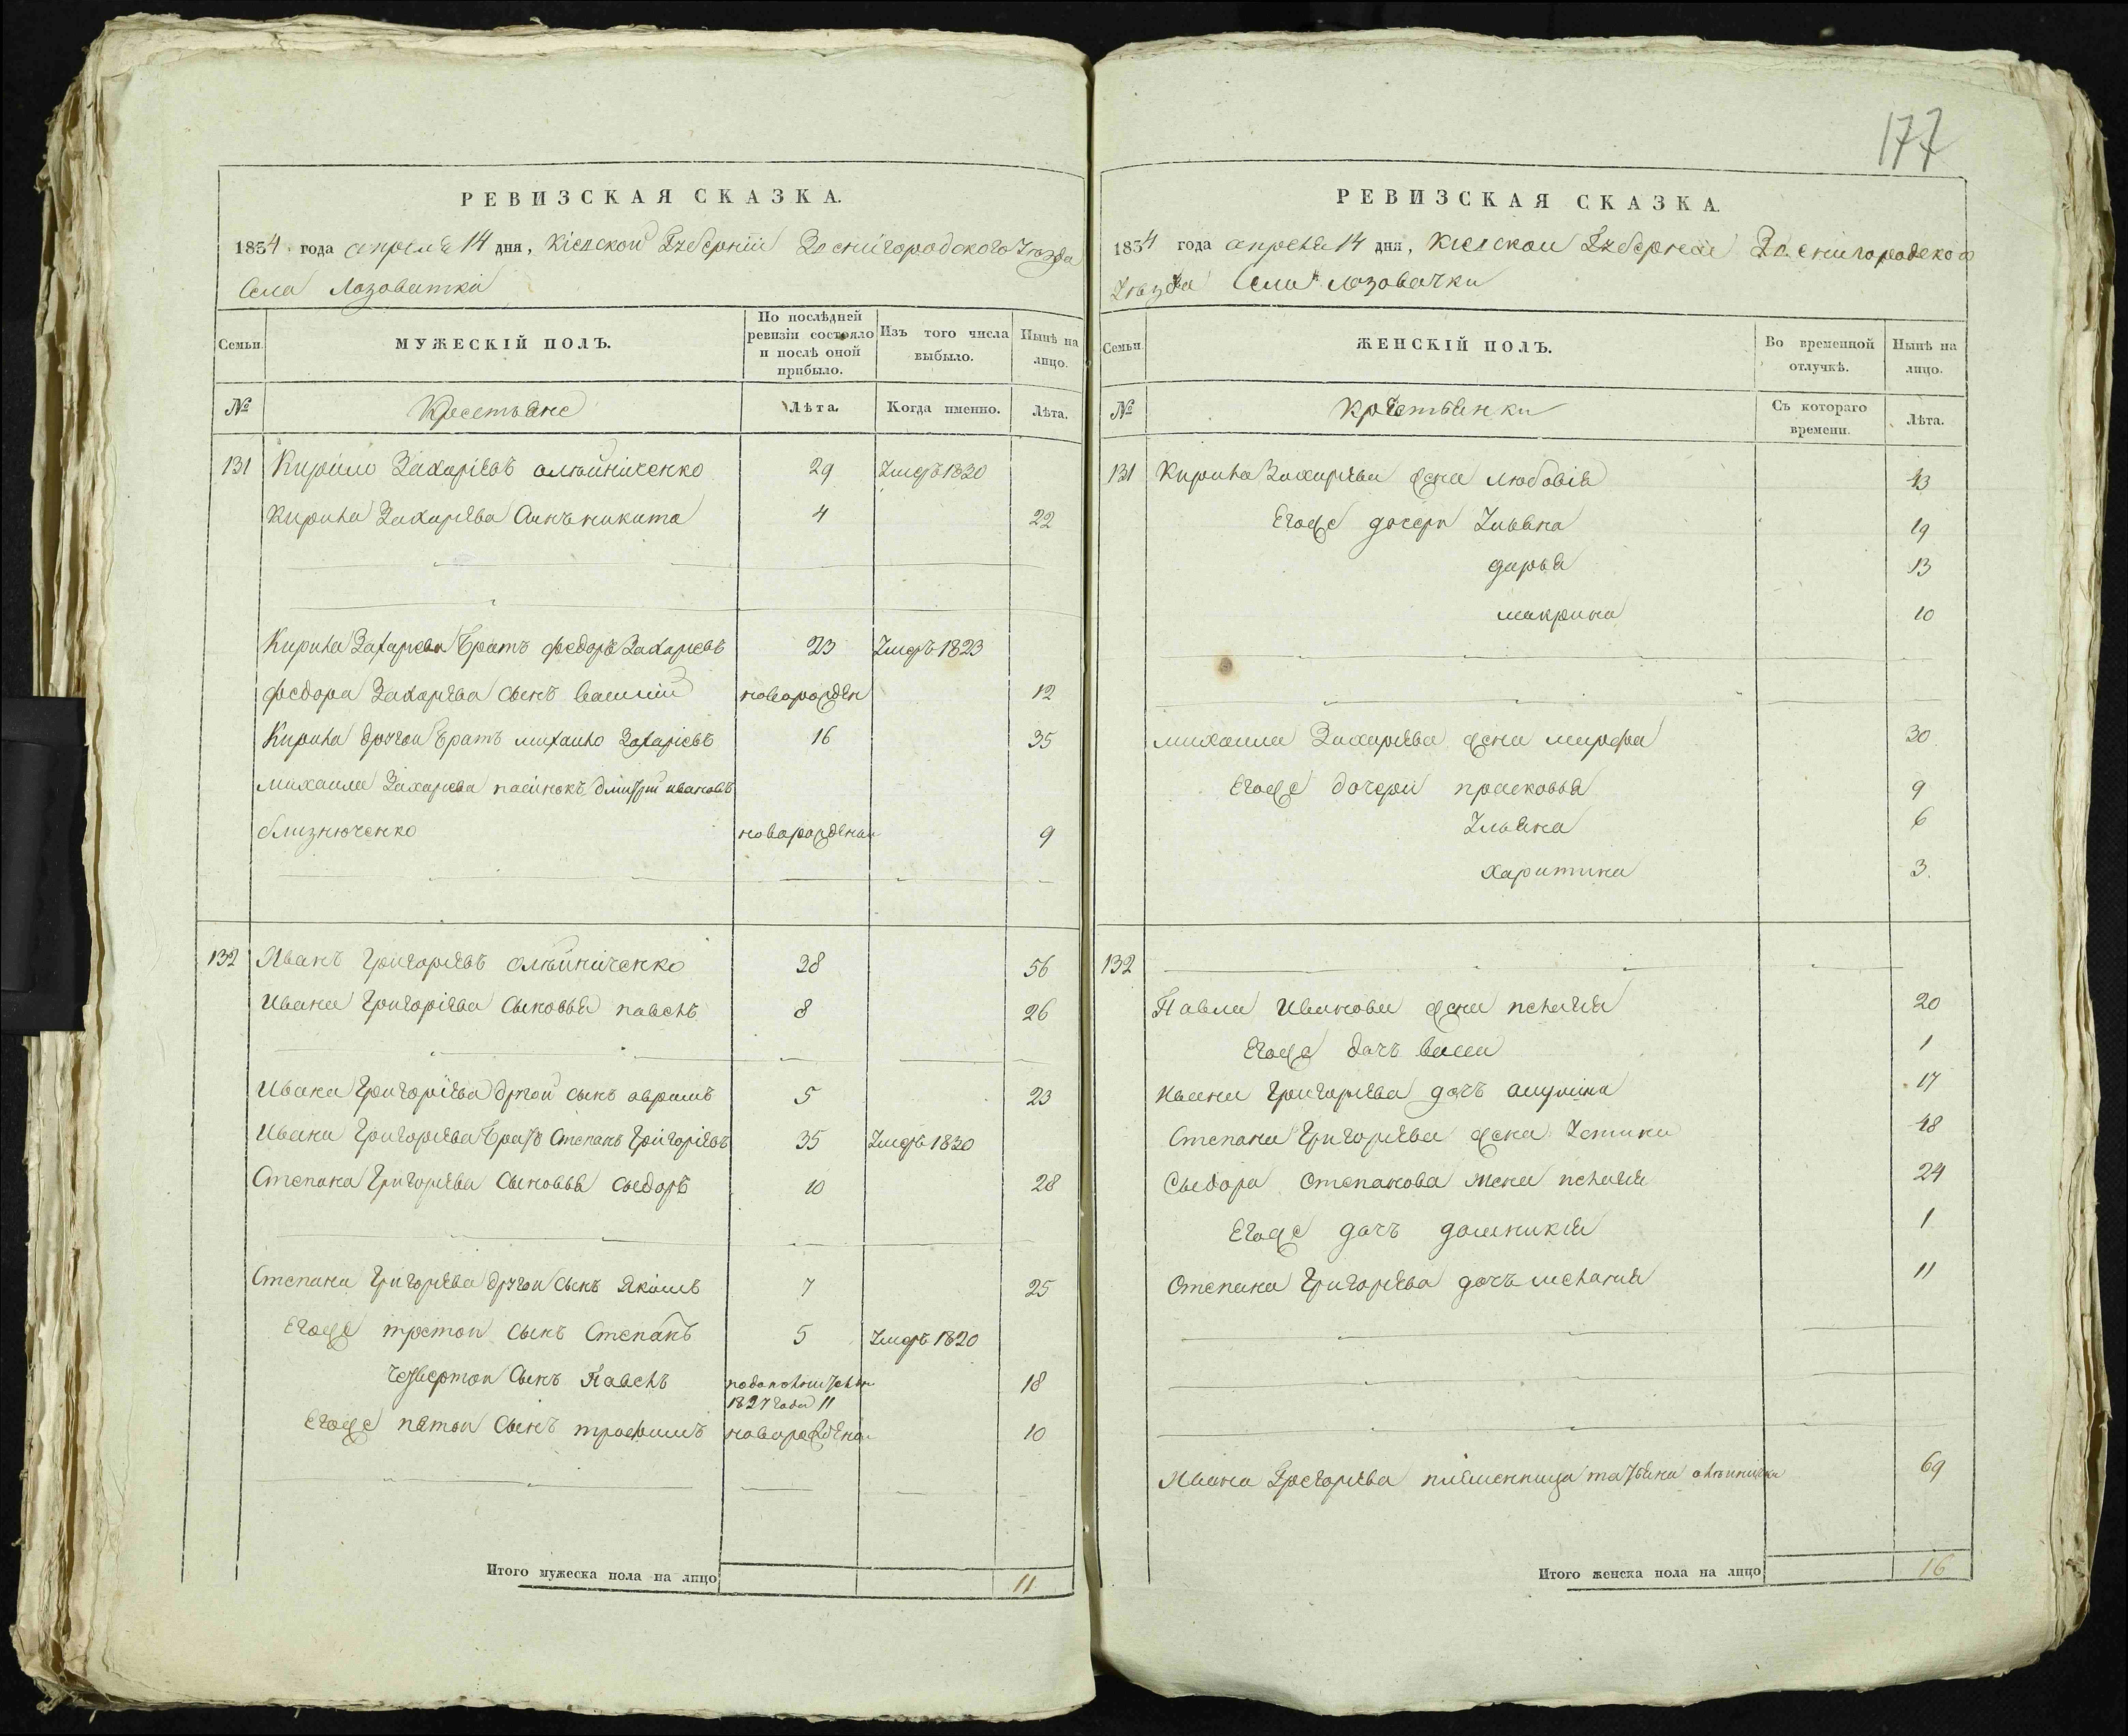 177
РЕВИЗСКАЯ СКАЗКА.
1834 года апреля 14 дня, Кіевской Губерніи Звенигородского Уезда
Села Лозоватки
Семьи.
МУЖЕСКІЙ ПОЛЪ.
По послѣдней ревизіи состояло и послѣ оной прибыло.
Изъ того числа выбыло.
Нынѣ на лицо.
№
Крестьяне
Лѣта.
Когда именно.
Лѣта.
131 Кирило Захаріевъ олейниченко 29 Умеръ 1820
Кирила Захариева Сынъ никита 4 22
Кирила Захариева братъ федоръ Захариевъ 23 Умеръ 1823
федора Захариева сынъ василій новорожден 12
Кирила другои братъ михаило Захаріевъ 16 35
михаила Захариева пасинокъ дмитрий ивановъ
близнюченко новорожденои 9
132 Иванъ Григориевъ олейниченко 38 56
Ивана Григоріева Сыновья павелъ 8 26
Ивана Григоріева другои сынъ аврамъ 5 23
Ивана Григориева братъ Степанъ Григоріевъ 35 Умеръ 1830
Степана Григориева Сыновья сыдоръ 10 28
Степана Григориева другои Сынъ Якимъ 7 25
Егоже третои Сынъ Степанъ 5 Умеръ 1820
четвертои Сынъ Павелъ 18
1827 года 11
Егоже пятои Сынъ трофимъ новорожденои 10
Итого мужеска пола на лицо 11
РЕВИЗСКАЯ СКАЗКА.
1834 года апреля 14 дня, Киевскои Губернеи Звенигородского
Уезда Села лозоватки
Семьи.
ЖЕНСКІЙ ПОЛЪ.
Во временной отлучкѣ.
Нынѣ на лицо.
№
Крестьянки
Съ котораго времени.
Лѣта.
131 Кирила Захариева жена любовія 43
Егоже дочери Ульяна 19
дарья 13
макрина 10
михаила Захариева жена марфа 30
Егоже дочери прасковья 9
Ульяна 6
харитина 3.
132
Павла Иванова жена пелагия 20
Егоже дочъ васса 1
Ивана Григориева дочъ 17
Степана Григориева жена Устина 48
Сыдора Степанова жена пелагия 24
Егоже дочъ домникия 1
Степана Григориева дочъ мелания 11
Ивана Грегориева племенница татьяна 69
Итого женска пола на лицо 16